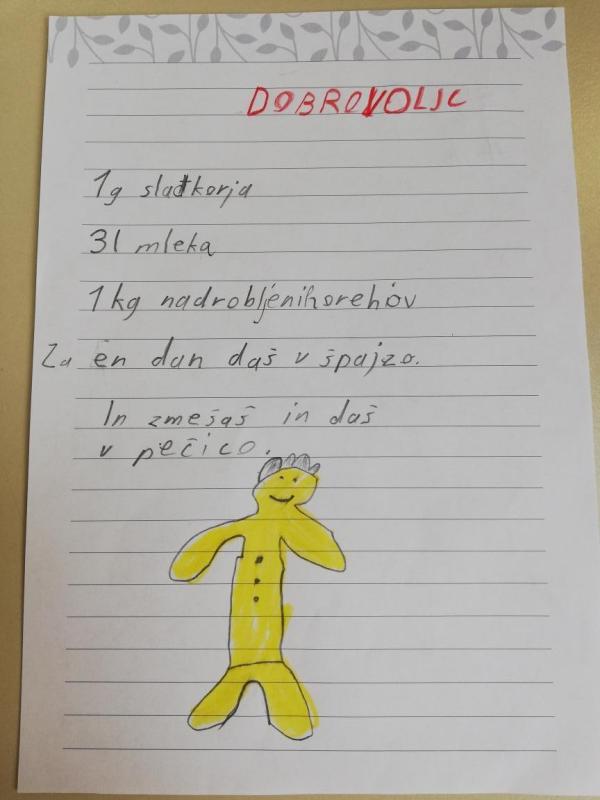 DOBROVOLJC
1g sladkorja
3l mleka
1kg nadrobljenihorehov
Za en dan daš v špajzo.
In zmešaš in daš
v pečico.